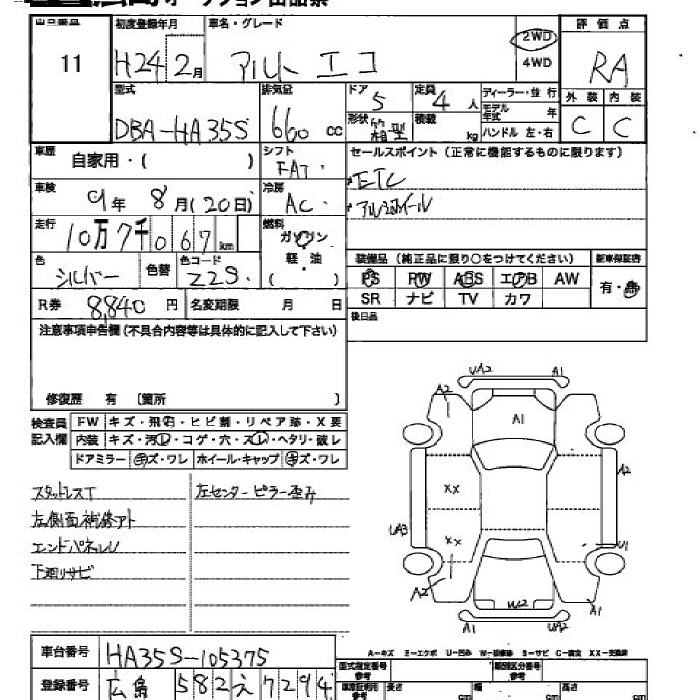 オークション出品票
出品番号 初度登録年月 車名・グレード 評価点
11 H24 2月 アルト エコ 2WD 4WD RA
型式 排気量 ドア 定員 ディーラー・並行 外装 内装
DBA-HA35S 660cc 5 4人 モデル年式 年 C C
形状 箱型 積載 kg ハンドル 左・右
車歴 自家用・( ) シフト FAT セールスポイント(正常に機能するものに限ります)
車検 年 8月(20日) 冷房 AC ETC
アルミホイール
走行 10万7千067km 燃料 ガソリン
軽・油
( )
色 シルバー 色替 色コード Z2S 装備品(純正品に限り○をつけてください) 新車保証書
PS PW ABS エアB AW 有・無
R券 8,840円 名変期限 月 日 SR ナビ TV カワ
注意事項申告欄(不具合内容等は具体的に記入して下さい) 後日品
修復歴 有 〔箇所 〕
検査員記入欄 FW キズ・飛石・ヒビ割・リペア跡・X要
内装 キズ・汚レ・コゲ・穴・スレ・ヘタリ・破レ
ドアミラー キズ・ワレ ホイール・キャップ キズ・ワレ
スタッドレスT 左センターピラー歪み
左側面補修アト
エンドパネルU
下廻りサビ
UA2 A1
A2
A1
XX A2
UA3 XX U1
A2 W2 A1
A1 UA2
A-キズ E-エクボ U-凹み W-補修跡 S-サビ C-腐食 XX-交換済
車台番号 HA35S-105375 型式指定番号 参考 類別区分番号 参考
登録番号 広島 582 え 7294 車庫証明用 参考 長さ cm 幅 cm 高さ cm